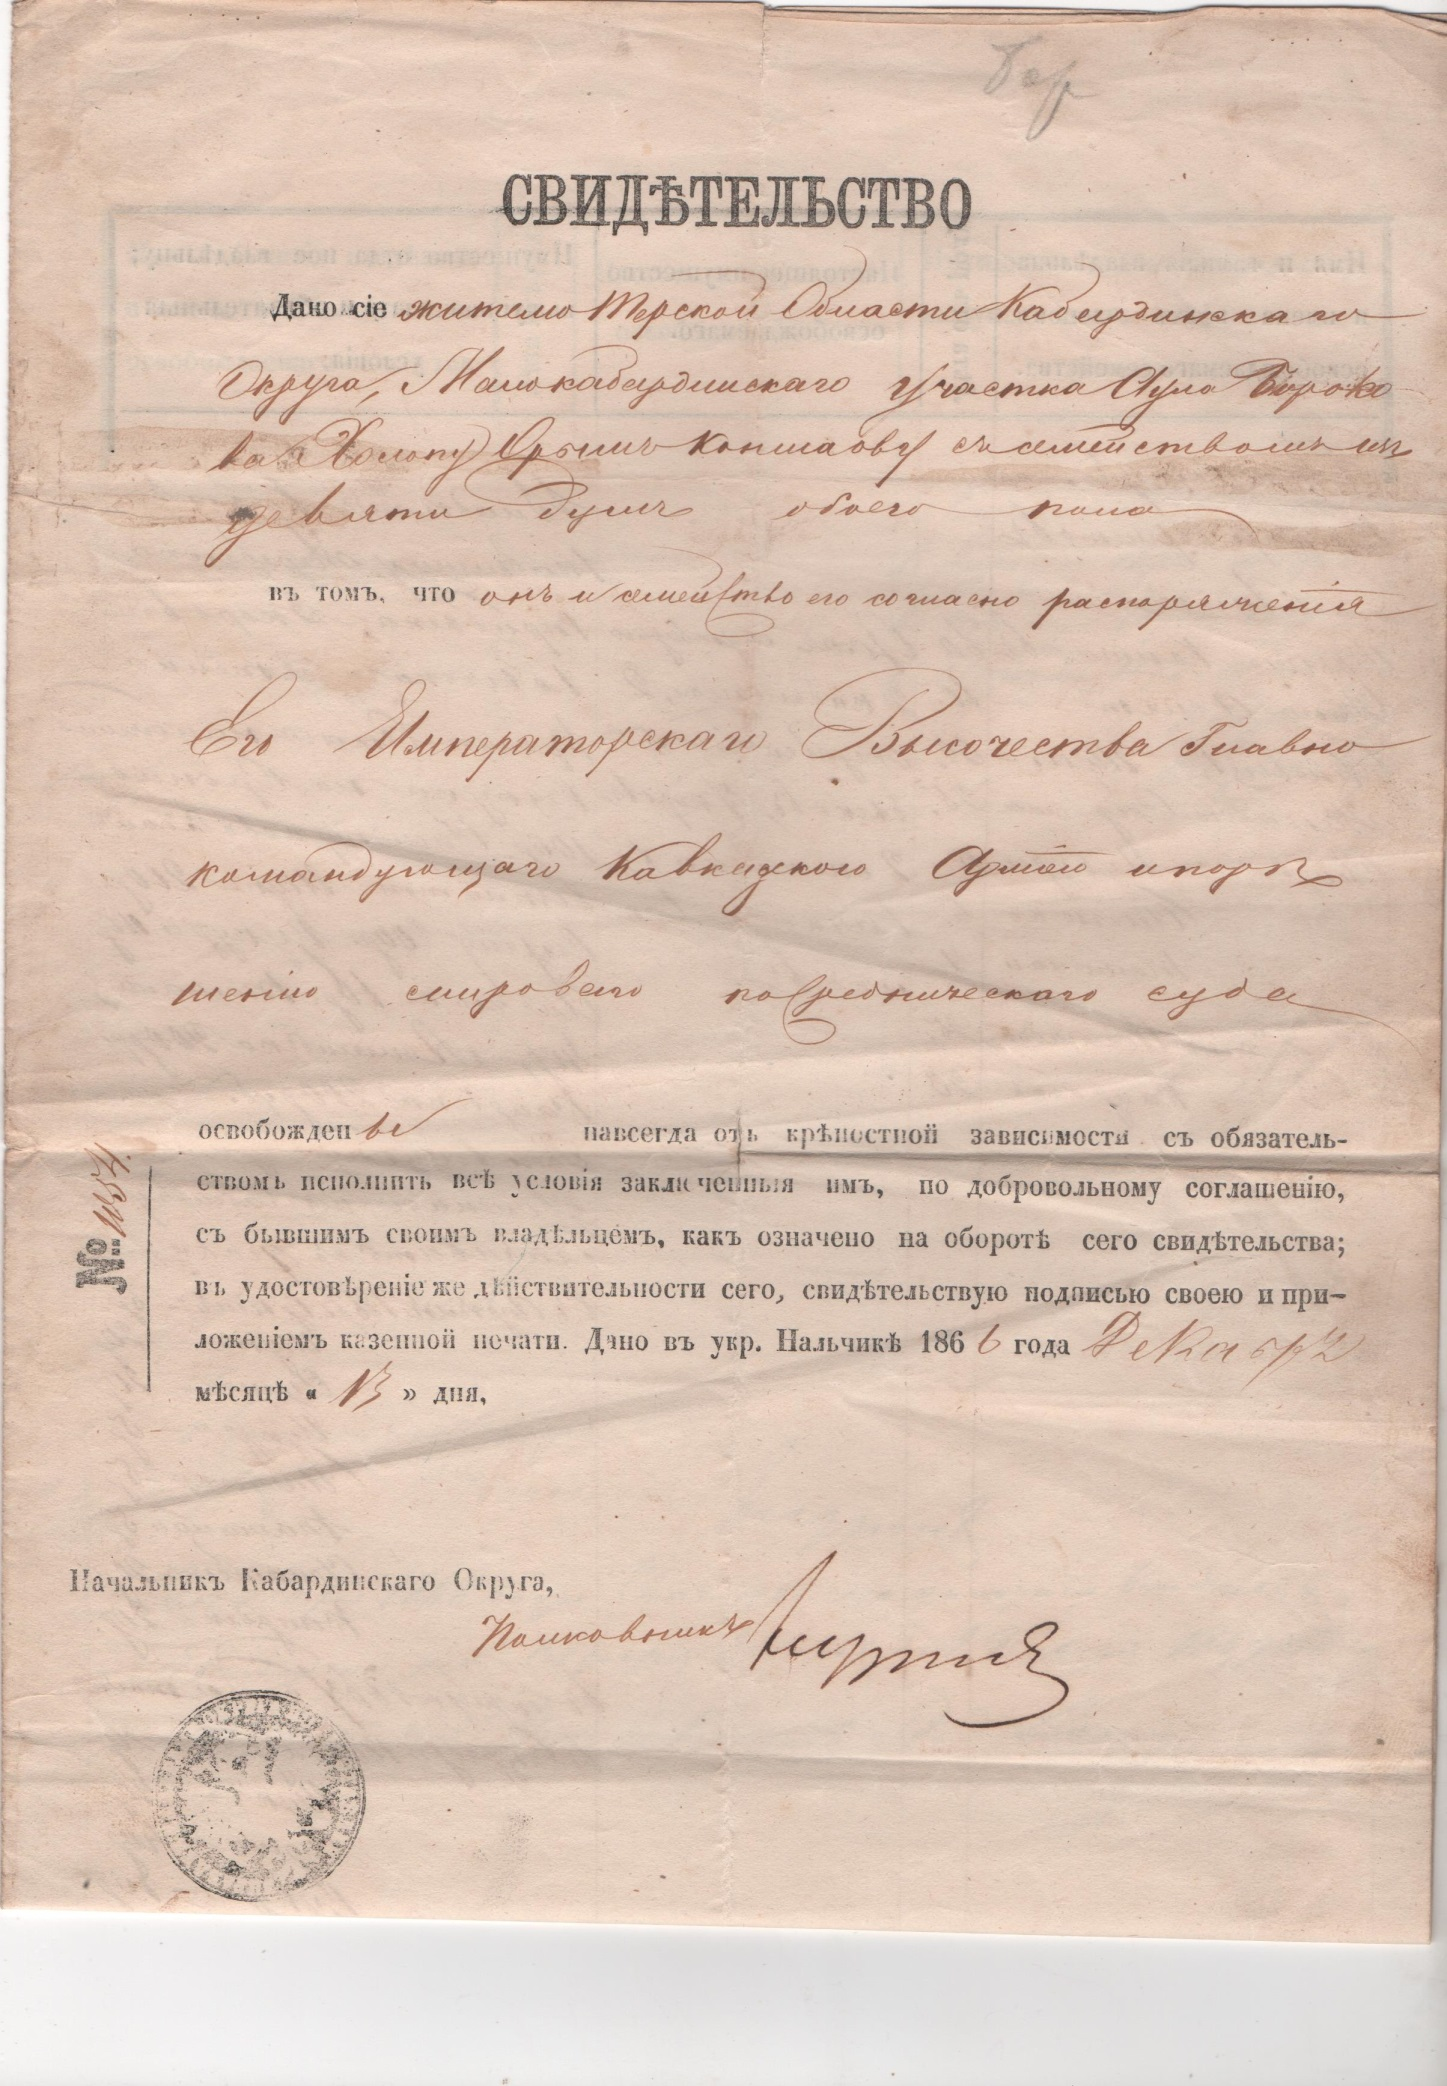 СВИДѢТЕЛЬСТВО
Дано сіе жителю Терской Области Кабардинскаго
Округа, Малокабардинскаго участка Аула Бороко
ва Холопу съ семействомъ изъ
девяти душъ обоего пола
въ томъ, что онъ и семейство его согласно распоряженія
Его Императорскаго Высочества Главно
командующаго Кавказкою Арміею и по рѣ
шенію мироваго посредническаго суда
освобождены навсегда отъ крѣпостной зависимости съ обязатель-
ствомъ исполнить всѣ условія заключенныя имъ, по добровольному соглашенію,
съ бывшимъ своимъ владѣльцемъ, какъ означено на оборотѣ сего свидѣтельства;
въ удостовѣреніе же дѣйствительности сего, свидѣтельствую подписью своею и при-
ложеніемъ казенной печати. Дано въ укр. Нальчикѣ 1866 года Декабрѣ
мѣсяцѣ « 13 » дня,
№ 1134.
Начальникъ Кабардинскаго Округа,
Полковникъ